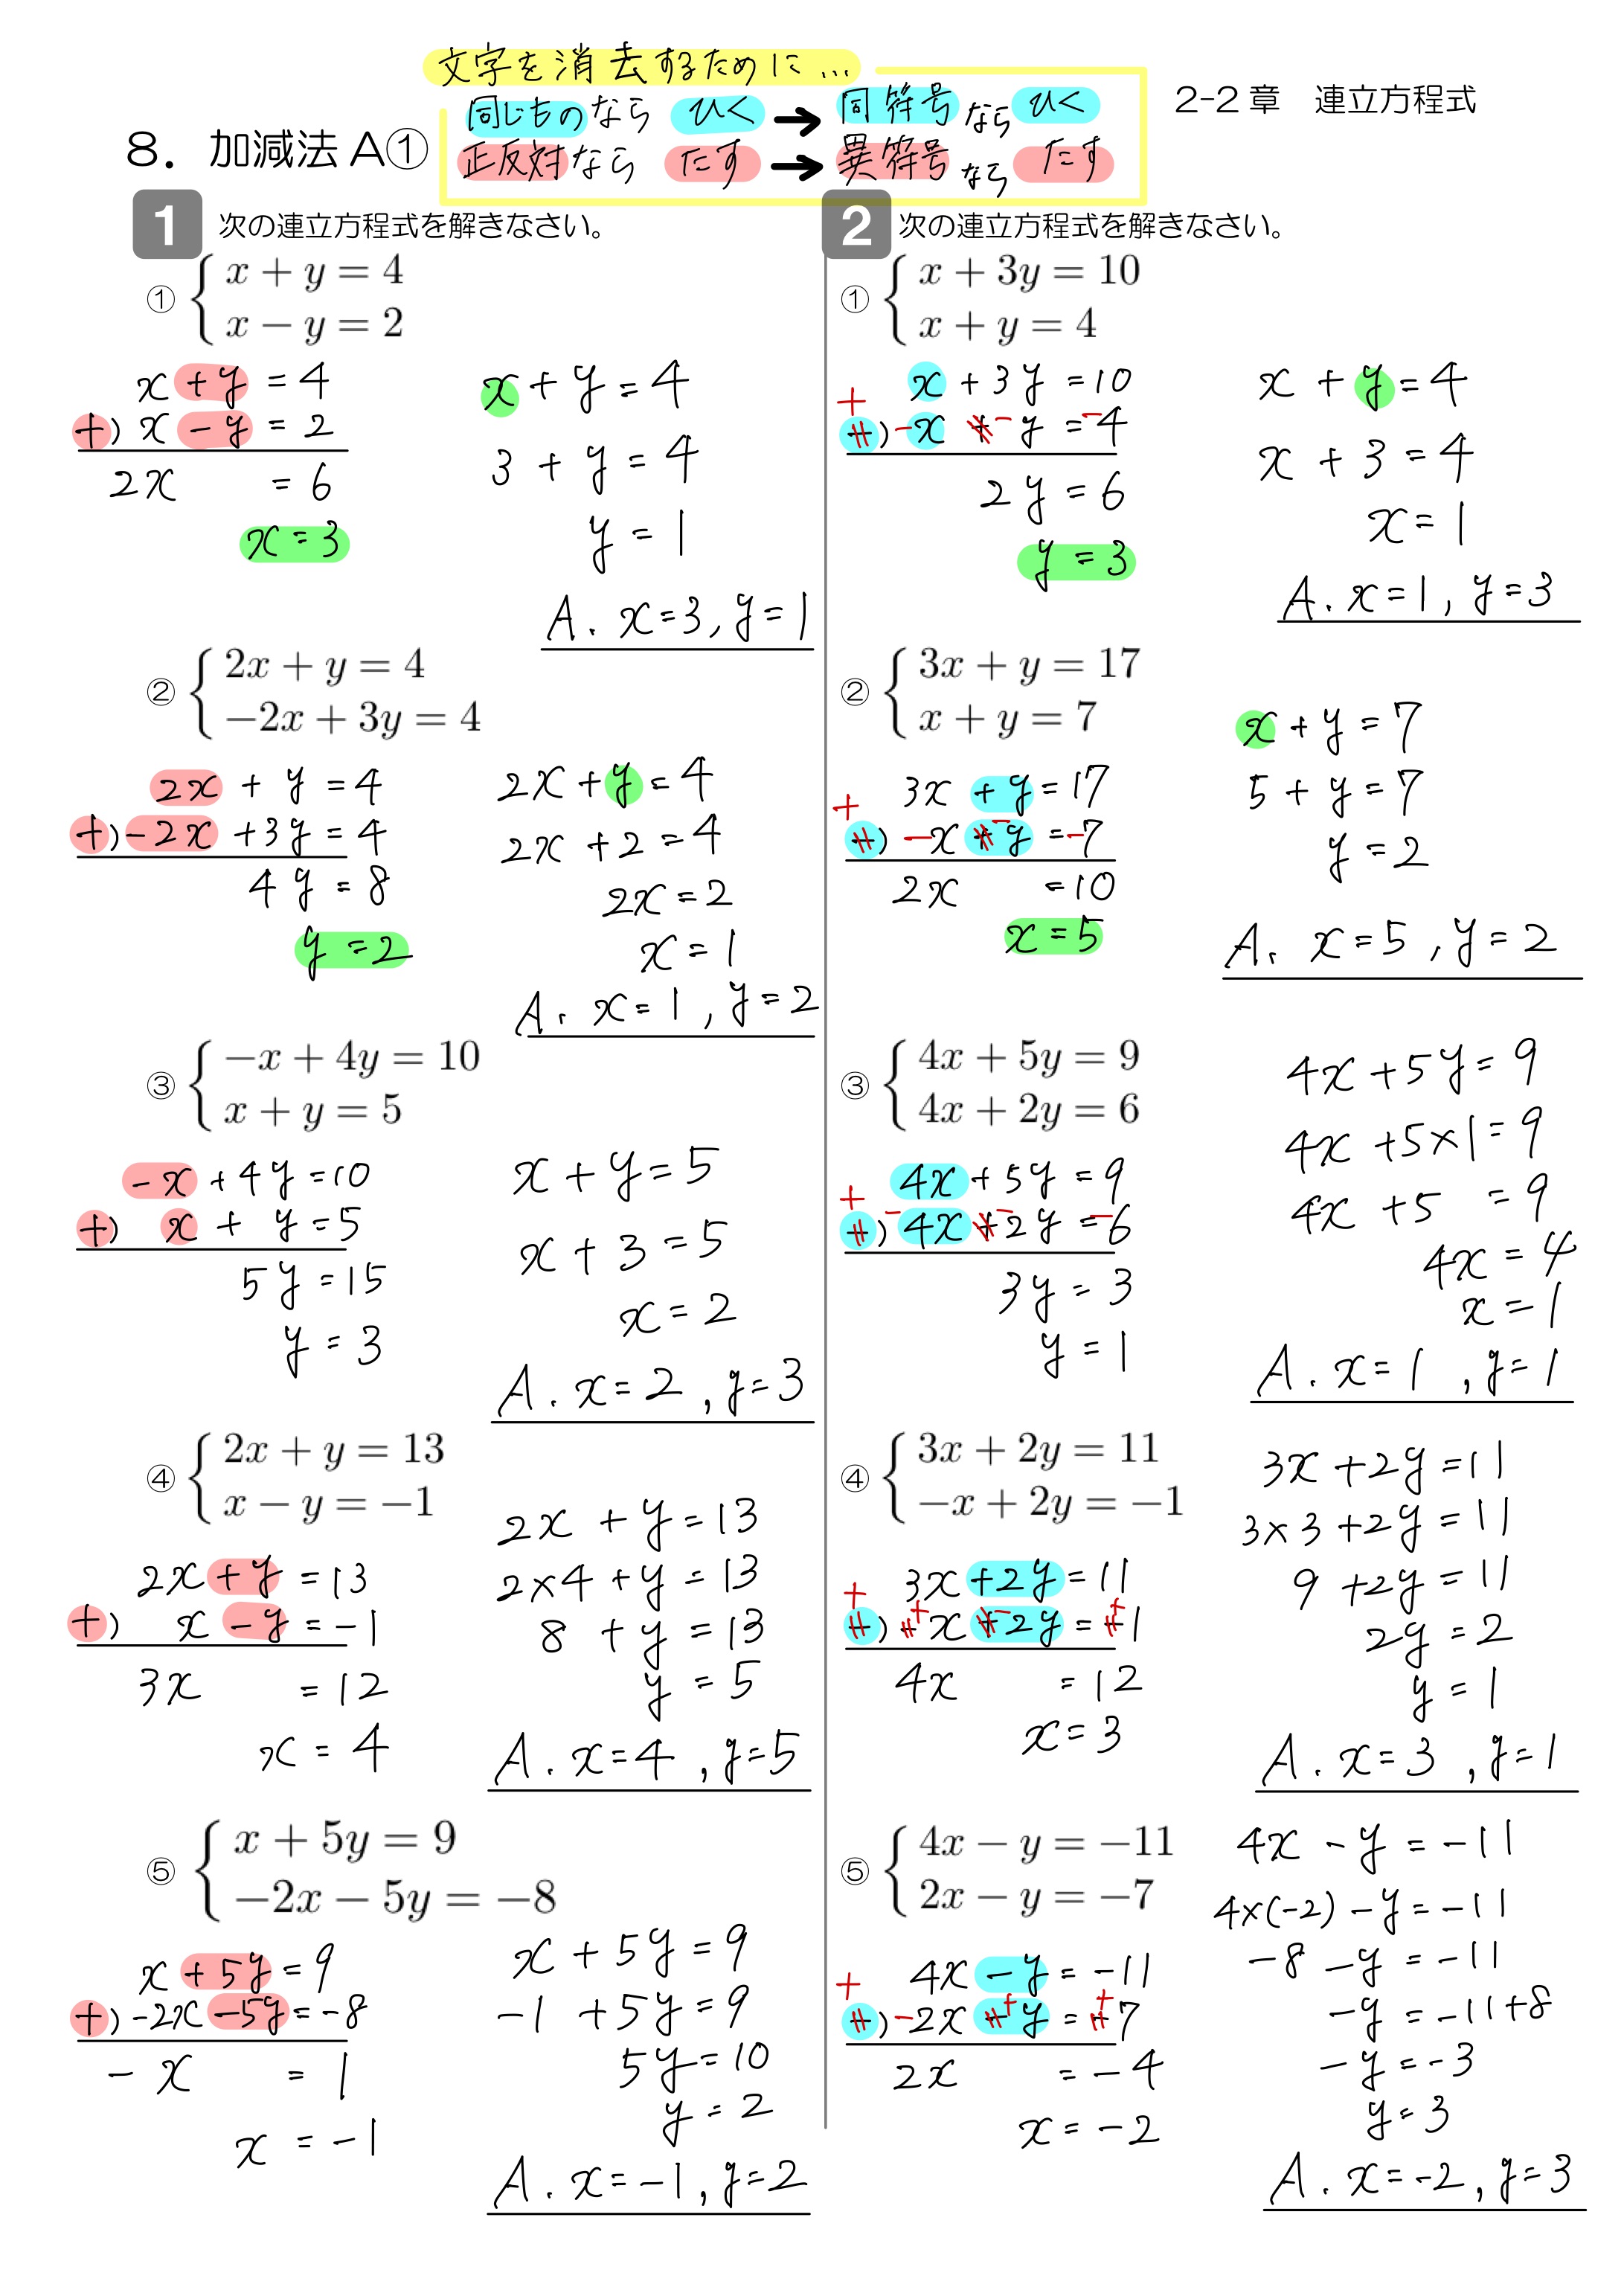 文字を消去するために…
同じものなら ひく → 同符号ならひく
正反対なら たす → 異符号ならたす
2-2章 連立方程式
8. 加減法A①
1 次の連立方程式を解きなさい。
① x + y = 4
x − y = 2
x + y = 4
+) x − y = 2
2x = 6
x = 3
x + y = 4
3 + y = 4
y = 1
A. x=3, y=1
② 2x + y = 4
−2x + 3y = 4
2x + y = 4
+) −2x + 3y = 4
4y = 8
y = 2
2x + y = 4
2x + 2 = 4
2x = 2
x = 1
A. x=1, y=2
③ −x + 4y = 10
x + y = 5
−x + 4y = 10
+) x + y = 5
5y = 15
y = 3
x + y = 5
x + 3 = 5
x = 2
A. x=2, y=3
④ 2x + y = 13
x − y = −1
2x + y = 13
+) x − y = −1
3x = 12
x = 4
2x + y = 13
2×4 + y = 13
8 + y = 13
y = 5
A. x=4, y=5
⑤ x + 5y = 9
−2x − 5y = −8
x + 5y = 9
+) −2x − 5y = −8
−x = 1
x = −1
x + 5y = 9
−1 + 5y = 9
5y = 10
y = 2
A. x=−1, y=2
2 次の連立方程式を解きなさい。
① x + 3y = 10
x + y = 4
x + 3y = 10
+) −x − y = −4
2y = 6
y = 3
x + y = 4
x + 3 = 4
x = 1
A. x=1, y=3
② 3x + y = 17
x + y = 7
3x + y = 17
+) −x − y = −7
2x = 10
x = 5
x + y = 7
5 + y = 7
y = 2
A. x=5, y=2
③ 4x + 5y = 9
4x + 2y = 6
4x + 5y = 9
+) −4x − 2y = −6
3y = 3
y = 1
4x + 5y = 9
4x + 5×1 = 9
4x + 5 = 9
4x = 4
x = 1
A. x=1, y=1
④ 3x + 2y = 11
−x + 2y = −1
3x + 2y = 11
+) +x − 2y = +1
4x = 12
x = 3
3x + 2y = 11
3×3 + 2y = 11
9 + 2y = 11
2y = 2
y = 1
A. x=3, y=1
⑤ 4x − y = −11
2x − y = −7
4x − y = −11
+) −2x + y = +7
2x = −4
x = −2
4x − y = −11
4×(−2) − y = −11
−8 − y = −11
−y = −11+8
−y = −3
y = 3
A. x=−2, y=3